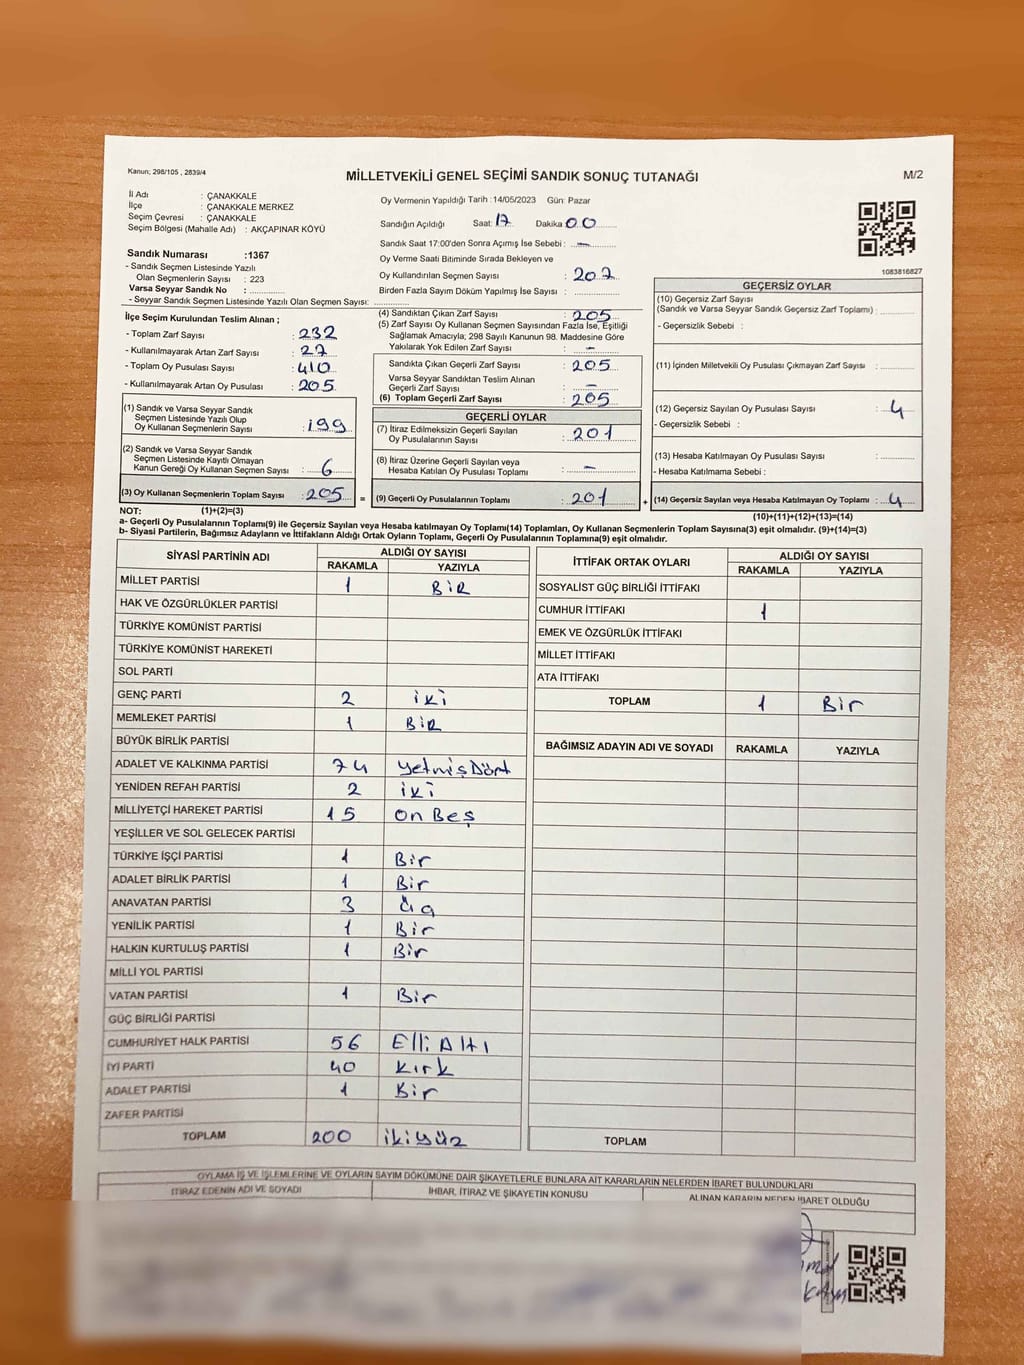 Kanun; 298/105 , 2839/4
MİLLETVEKİLİ GENEL SEÇİMİ SANDIK SONUÇ TUTANAĞI
M/2
İl Adı : ÇANAKKALE
İlçe : ÇANAKKALE MERKEZ
Seçim Çevresi : ÇANAKKALE
Seçim Bölgesi (Mahalle Adı) : AKÇAPINAR KÖYÜ
Sandık Numarası :1367
- Sandık Seçmen Listesinde Yazılı
Olan Seçmenlerin Sayısı : 223
Varsa Seyyar Sandık No :
- Seyyar Sandık Seçmen Listesinde Yazılı Olan Seçmen Sayısı:
Oy Vermenin Yapıldığı Tarih :14/05/2023 Gün: Pazar
Sandığın Açıldığı Saat: 17 Dakika 00
Sandık Saat 17:00'den Sonra Açımış İse Sebebi : -
Oy Verme Saati Bitiminde Sırada Bekleyen ve
Oy Kullandırılan Seçmen Sayısı : 207
Birden Fazla Sayım Döküm Yapılmış İse Sayısı :
1083816827
İlçe Seçim Kurulundan Teslim Alınan ;
- Toplam Zarf Sayısı : 232
- Kullanılmayarak Artan Zarf Sayısı : 27
- Toplam Oy Pusulası Sayısı : 410
- Kullanılmayarak Artan Oy Pusulası : 205
(1) Sandık ve Varsa Seyyar Sandık
Seçmen Listesinde Yazılı Olup
Oy Kullanan Seçmenlerin Sayısı : 199
(2) Sandık ve Varsa Seyyar Sandık
Seçmen Listesinde Kayıtlı Olmayan
Kanun Gereği Oy Kullanan Seçmen Sayısı : 6
(3) Oy Kullanan Seçmenlerin Toplam Sayısı : 205 =
(4) Sandıktan Çıkan Zarf Sayısı : 205
(5) Zarf Sayısı Oy Kullanan Seçmen Sayısından Fazla İse, Eşitliği
Sağlamak Amacıyla; 298 Sayılı Kanunun 98. Maddesine Göre
Yakılarak Yok Edilen Zarf Sayısı : -
Sandıkta Çıkan Geçerli Zarf Sayısı : 205
Varsa Seyyar Sandıktan Teslim Alınan
Geçerli Zarf Sayısı : -
(6) Toplam Geçerli Zarf Sayısı : 205
GEÇERLİ OYLAR
(7) İtiraz Edilmeksizin Geçerli Sayılan
Oy Pusulalarının Sayısı : 201
(8) İtiraz Üzerine Geçerli Sayılan veya
Hesaba Katılan Oy Pusulası Toplamı : -
(9) Geçerli Oy Pusulalarının Toplamı : 201 +
GEÇERSİZ OYLAR
(10) Geçersiz Zarf Sayısı
(Sandık ve Varsa Seyyar Sandık Geçersiz Zarf Toplamı) :
- Geçersizlik Sebebi :
(11) İçinden Milletvekili Oy Pusulası Çıkmayan Zarf Sayısı :
(12) Geçersiz Sayılan Oy Pusulası Sayısı : 4
- Geçersizlik Sebebi :
(13) Hesaba Katılmayan Oy Pusulası Sayısı :
- Hesaba Katılmama Sebebi :
(14) Geçersiz Sayılan veya Hesaba Katılmayan Oy Toplamı : 4
NOT: (1)+(2)=(3) (10)+(11)+(12)+(13)=(14)
a- Geçerli Oy Pusulalarının Toplamı(9) ile Geçersiz Sayılan veya Hesaba katılmayan Oy Toplamı(14) Toplamları, Oy Kullanan Seçmenlerin Toplam Sayısına(3) eşit olmalıdır. (9)+(14)=(3)
b- Siyasi Partilerin, Bağımsız Adayların ve İttifakların Aldığı Ortak Oyların Toplamı, Geçerli Oy Pusulalarının Toplamına(9) eşit olmalıdır.
SİYASİ PARTİNİN ADI ALDIĞI OY SAYISI
RAKAMLA YAZIYLA
MİLLET PARTİSİ 1 BİR
HAK VE ÖZGÜRLÜKLER PARTİSİ
TÜRKİYE KOMÜNİST PARTİSİ
TÜRKİYE KOMÜNİST HAREKETİ
SOL PARTİ
GENÇ PARTİ 2 iki
MEMLEKET PARTİSİ 1 BİR
BÜYÜK BİRLİK PARTİSİ
ADALET VE KALKINMA PARTİSİ 74 YetmişDört
YENİDEN REFAH PARTİSİ 2 iki
MİLLİYETÇİ HAREKET PARTİSİ 15 on Beş
YEŞİLLER VE SOL GELECEK PARTİSİ
TÜRKİYE İŞÇİ PARTİSİ 1 Bir
ADALET BİRLİK PARTİSİ 1 Bir
ANAVATAN PARTİSİ 3 üç
YENİLİK PARTİSİ 1 Bir
HALKIN KURTULUŞ PARTİSİ 1 Bir
MİLLİ YOL PARTİSİ
VATAN PARTİSİ 1 Bir
GÜÇ BİRLİĞİ PARTİSİ
CUMHURİYET HALK PARTİSİ 56 Elli Altı
İYİ PARTİ 40 Kırk
ADALET PARTİSİ 1 Bir
ZAFER PARTİSİ
TOPLAM 200 ikiyüz
İTTİFAK ORTAK OYLARI ALDIĞI OY SAYISI
RAKAMLA YAZIYLA
SOSYALİST GÜÇ BİRLİĞİ İTTİFAKI
CUMHUR İTTİFAKI 1
EMEK VE ÖZGÜRLÜK İTTİFAKI
MİLLET İTTİFAKI
ATA İTTİFAKI
TOPLAM 1 Bir
BAĞIMSIZ ADAYIN ADI VE SOYADI RAKAMLA YAZIYLA
TOPLAM
OYLAMA İŞ VE İŞLEMLERİNE VE OYLARIN SAYIM DÖKÜMÜNE DAİR ŞİKAYETLERLE BUNLARA AİT KARARLARIN NELERDEN İBARET BULUNDUKLARI
İTİRAZ EDENİN ADI VE SOYADI İHBAR, İTİRAZ VE ŞİKAYETİN KONUSU ALINAN KARARIN NEDEN İBARET OLDUĞU